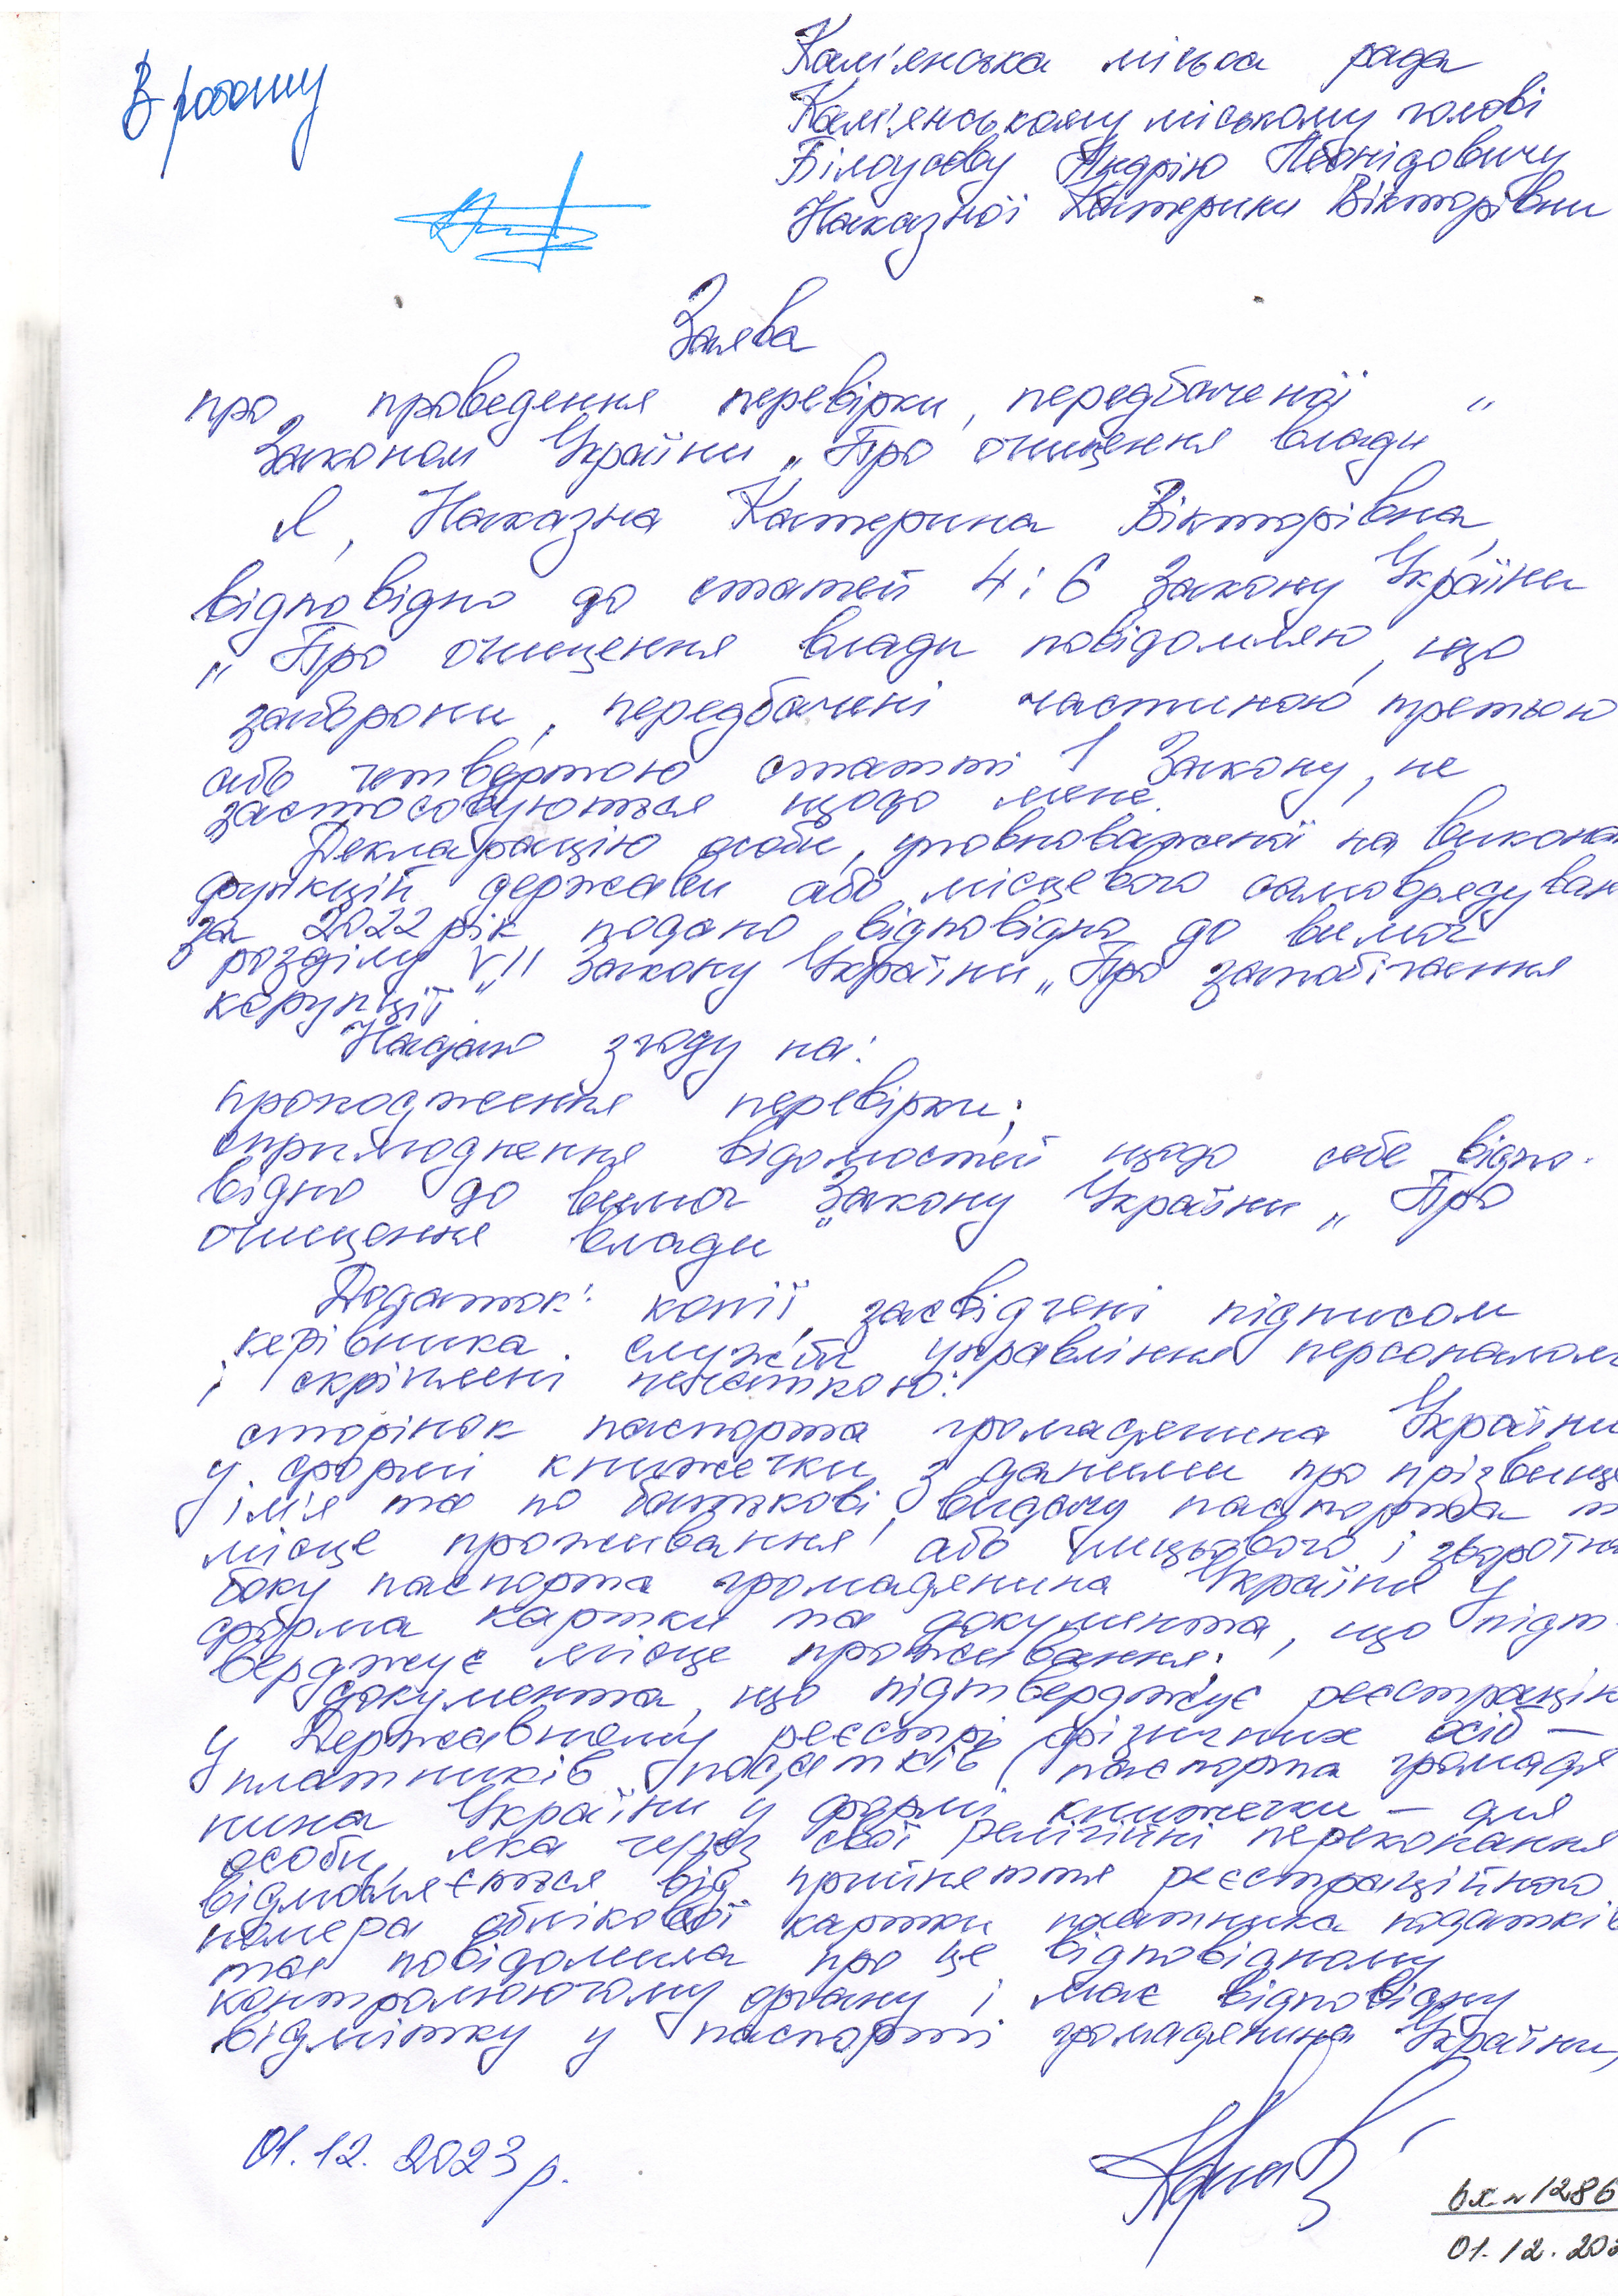 В роботу
Кам'янська міська рада
Кам'янському міському голові
Білоусову Андрію Леонідовичу
Наказної Катерини Вікторівни
Заява
про проведення перевірки, передбаченої
Законом України „Про очищення влади"
Я, Наказна Катерина Вікторівна,
відповідно до статей 4 і 6 Закону України
„Про очищення влади повідомляю, що
заборони, передбачені частиною третьою
або четвертою статті 1 Закону, не
застосовуються щодо мене.
Декларацію особи, уповноваженої на викона
функцій держави або місцевого самоврядуван
за 2022 рік подано відповідно до вимог
розділу VII Закону України „Про запобігання
корупції".
Надаю згоду на:
проходження перевірки;
оприлюднення відомостей щодо себе відпо-
відно до вимог Закону України „Про
очищення влади"
Додаток: копії, засвідчені підписом
керівника служби управління персоналом
і скріплені печаткою:
сторінок паспорта громадянина України
у формі книжечки з даними про прізвище
ім'я та по батькові, видачу паспорта т
місце проживання або лицьового і зворотно
боку паспорта громадянина України у
форма картки та документа, що підт-
верджує місце проживання;
документа, що підтверджує реєстрацію
у Державному реєстрі фізичних осіб —
платників податків (паспорта громадя
нина України у формі книжечки — для
особи, яка через свої релігійні переконання
відмовляється від прийняття реєстраційного
номера облікової картки платника податків
та повідомила про це відповідному
контролюючому органу і має відповідну
відмітку у паспорті громадянина України)
01.12.2023 р.
вх № 1286
01.12.202